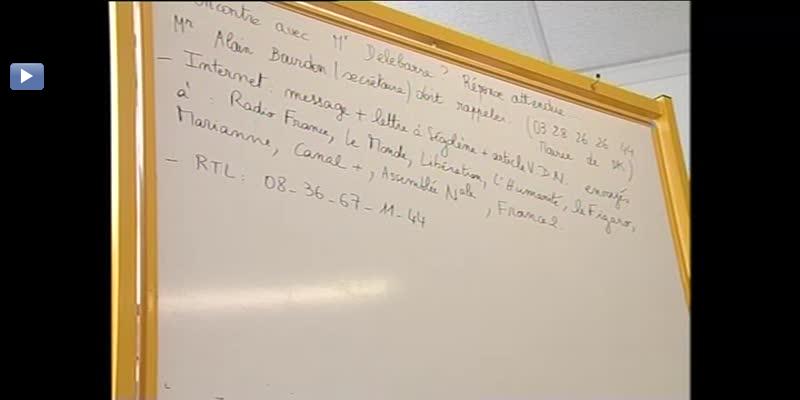 rencontre avec Mr Delebarre ? Réponse attendue...
Mr Alain Bourdon (secrétaire) doit rappeler. (03 28 26 26 44
Mairie de DK)
- Internet : message + lettre à Ségolène + article V.D.N. envoyés
à : Radio France, Le Monde, Libération, L'Humanité, le Figaro,
Marianne, Canal +, Assemblée Nale, France 2.
- RTL : 08-36-67-11-44